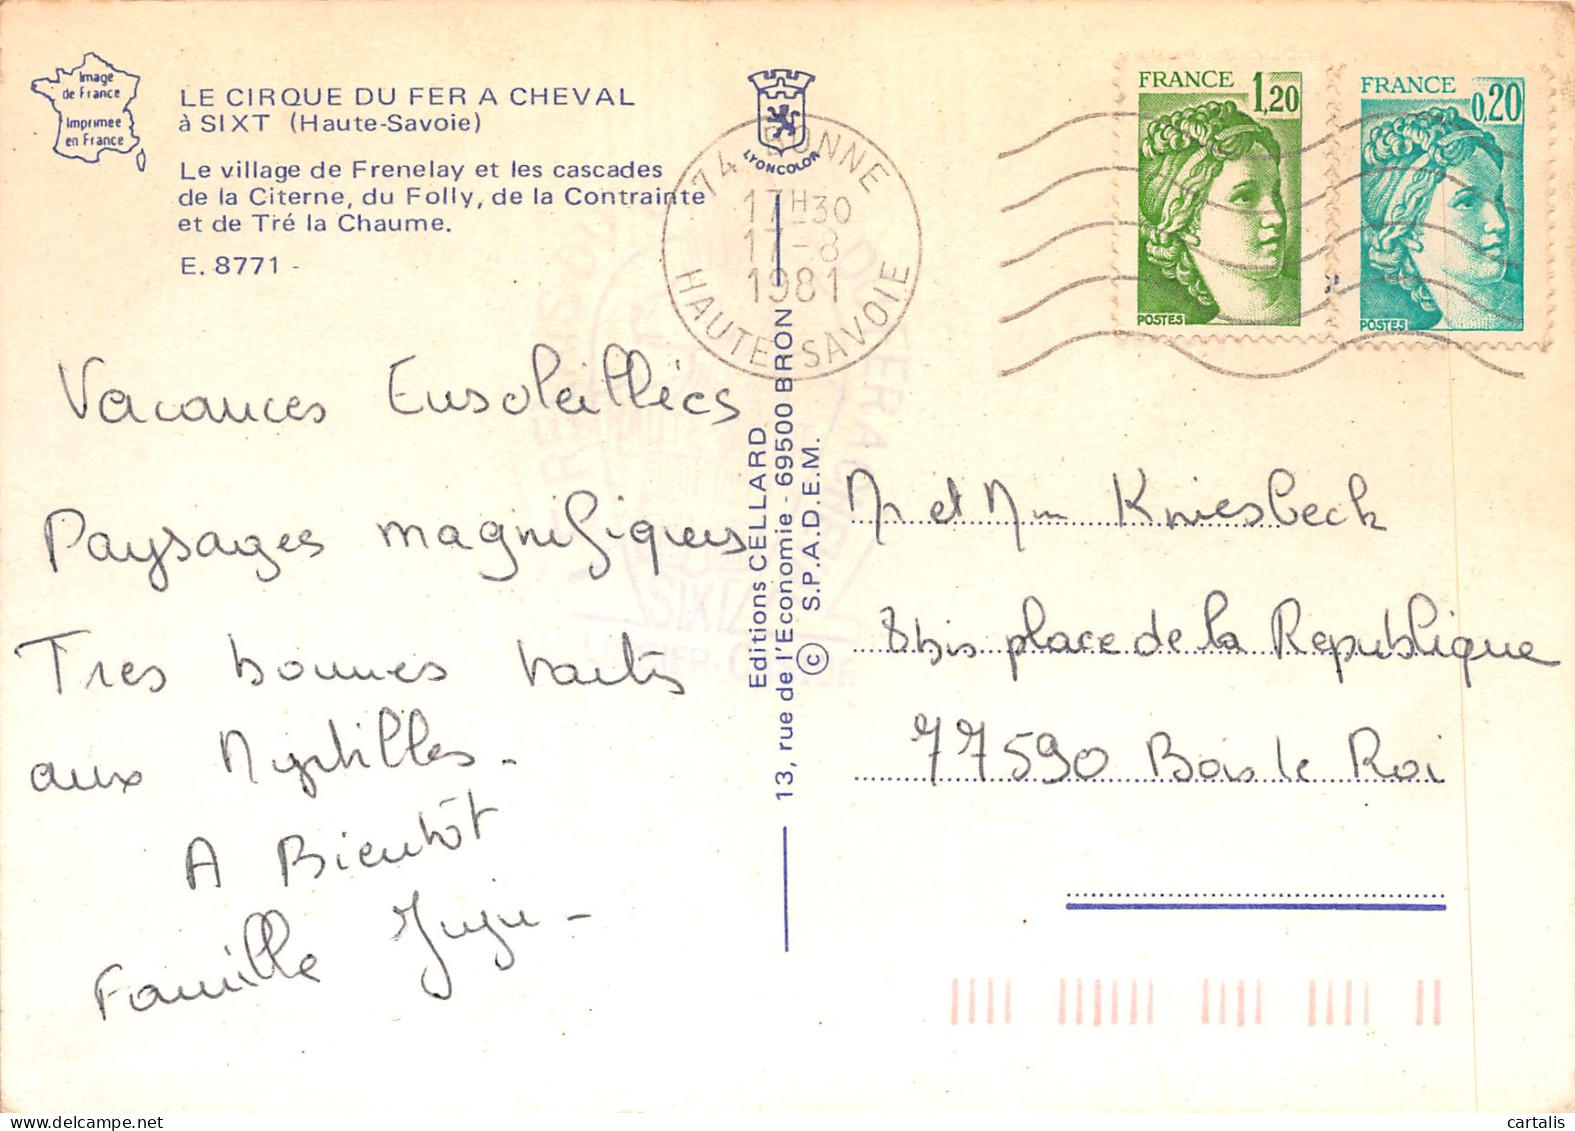 Image
de France
Imprimee
en France
LE CIRQUE DU FER A CHEVAL
à SIXT (Haute-Savoie)
Le village de Frenelay et les cascades
de la Citerne, du Folly, de la Contrainte
et de Tré la Chaume.
E. 8771 -
LYONCOLOR
74 BONNE
17H30
17-8
1981
HAUTE-SAVOIE
FRANCE 1,20
POSTES
FRANCE 0,20
POSTES
Vacances Ensoleillées
Paysages magnifiques
Tres bonnes tartes
aux Myrtilles -
A Bientôt
Famille Juju -
Editions CELLARD
13, rue de l'Economie - 69500 BRON
© S.P.A.D.E.M.
Mr et Mme Kniesbeck
8bis place de la Republique
77590 Bois le Roi
SIXT
cartalis